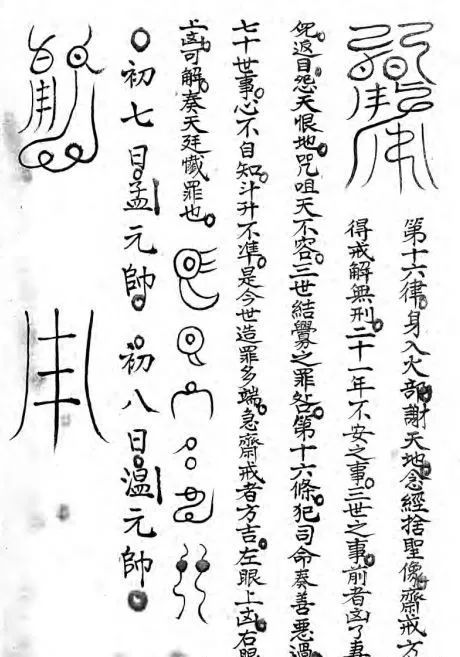 第十六律。身入火部。謝天地。念經捨聖像。齋戒方
得戒解無刑。二十一年不安之事。三世之事。前者凶了妻
兒。返目怨天恨地。咒咀天不容。三世結釁之罪咎。第十六條。犯司命奏善惡過
七十世事。心不自知。斗升不準。是今世造罪多端。急齋戒者方吉。左眼上凶。右眼
上凶。可解。奏天廷懺罪也。
初七日。孟元帥。初八日。溫元帥。